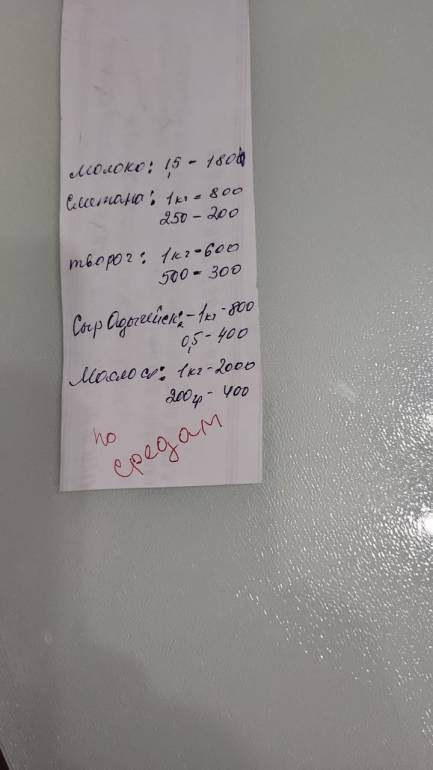 Молоко: 1,5 - 180
Сметана: 1кг = 800
250 - 200
творог: 1кг - 600
500 = 300
Сыр Адыгейск: - 1кг - 800
0,5 - 400
Масло сл: 1кг - 2000
200гр - 400
по
средам